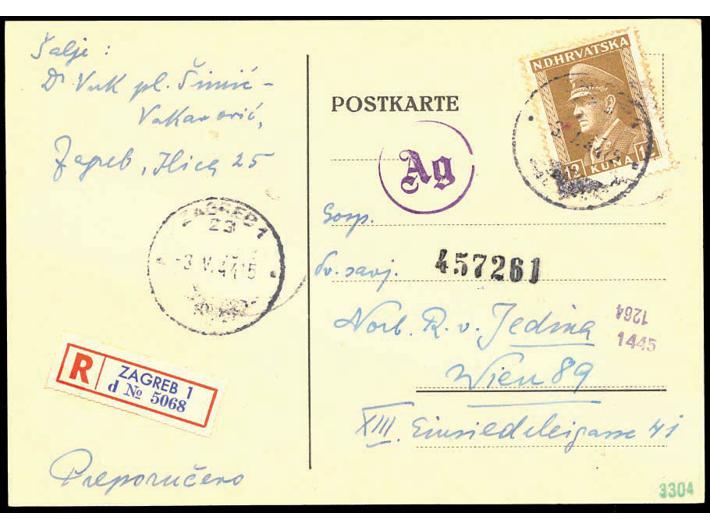 Šalje:
Dr Vuk pl. Šimić-
Vukanović,
Zagreb, Ilica 25
POSTKARTE
N.D.HRVATSKA
12
KUNA
Ag
ZAGREB 1
23
-3.V.44.15
R
ZAGREB 1
d № 5068
Preporučeno
Gosp.
Dv. savj.
457261
Norb. R. v. Jedina
1264
1445
Wien 89
XIII. Einsiedeleigasse 41
3304